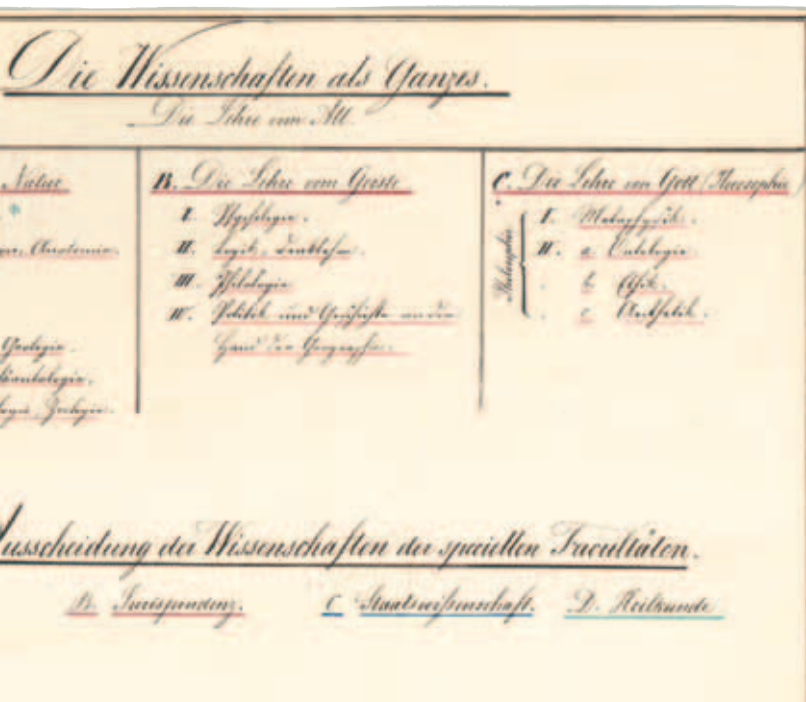 Die Wissenschaften als Ganzes.
Die Lehre vom All
Natur
Anatomie.
Geologie.
Zoologie.
B. Die Lehre vom Geiste
I. Psychologie.
II. Logik, Denklehre.
III. Philologie
IV. Politik und Geschichte an der
Hand der Geographie.
C. Die Lehre von Gott (Theosophie)
Philosophie
I. Metaphysik.
II. a. Ontologie.
b. Ethik.
c. Aesthetik.
Ausscheidung der Wissenschaften der speciellen Facultäten.
B. Jurisprudenz. C Staatswissenschaft. D. Heilkunde